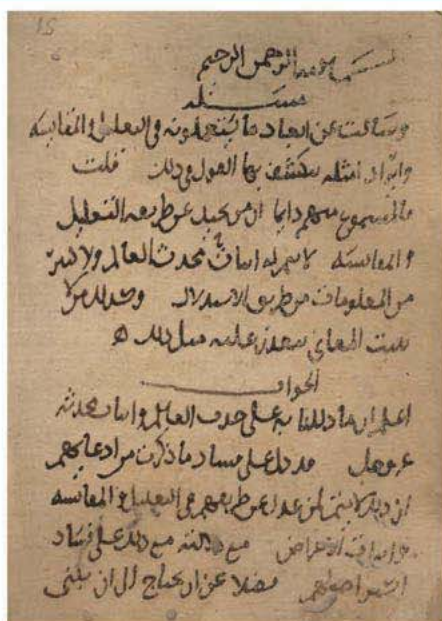 15
بسم الله الرحمن الرحيم
مسئله
وسألت عن ايراد ما يستعملونه في التعليل والمقايسة
وايراد امثله ينكشف بها القول في ذلك قلت
والمسموع منهم دايما ان من يحيل عن طريقه التعليل
والمقايسه لا يتم له اثبات محدث العالم ولا كثير
من المعلومات من طريق الاستدلال وكذلك من لا
يثبت المعاني يتعذر عليه مثل ذلك
الجواب
اعلم ان ما دللنا به على حدث العالم واثبات محدثه
عز وجل قد دل على فساد ما ذكرت من ادعايهم
ان ذلك لا يتم لمن عدل عن طريقهم في التعليل والمقايسه
واثبات الاعراض مع دلالته مع ذلك على فساد
اكثر اصولهم فضلا عن ان يحتاج الى ان يبنى